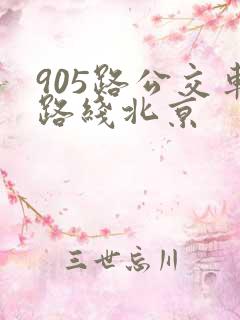 905路公交车
路线北京
三世忘川